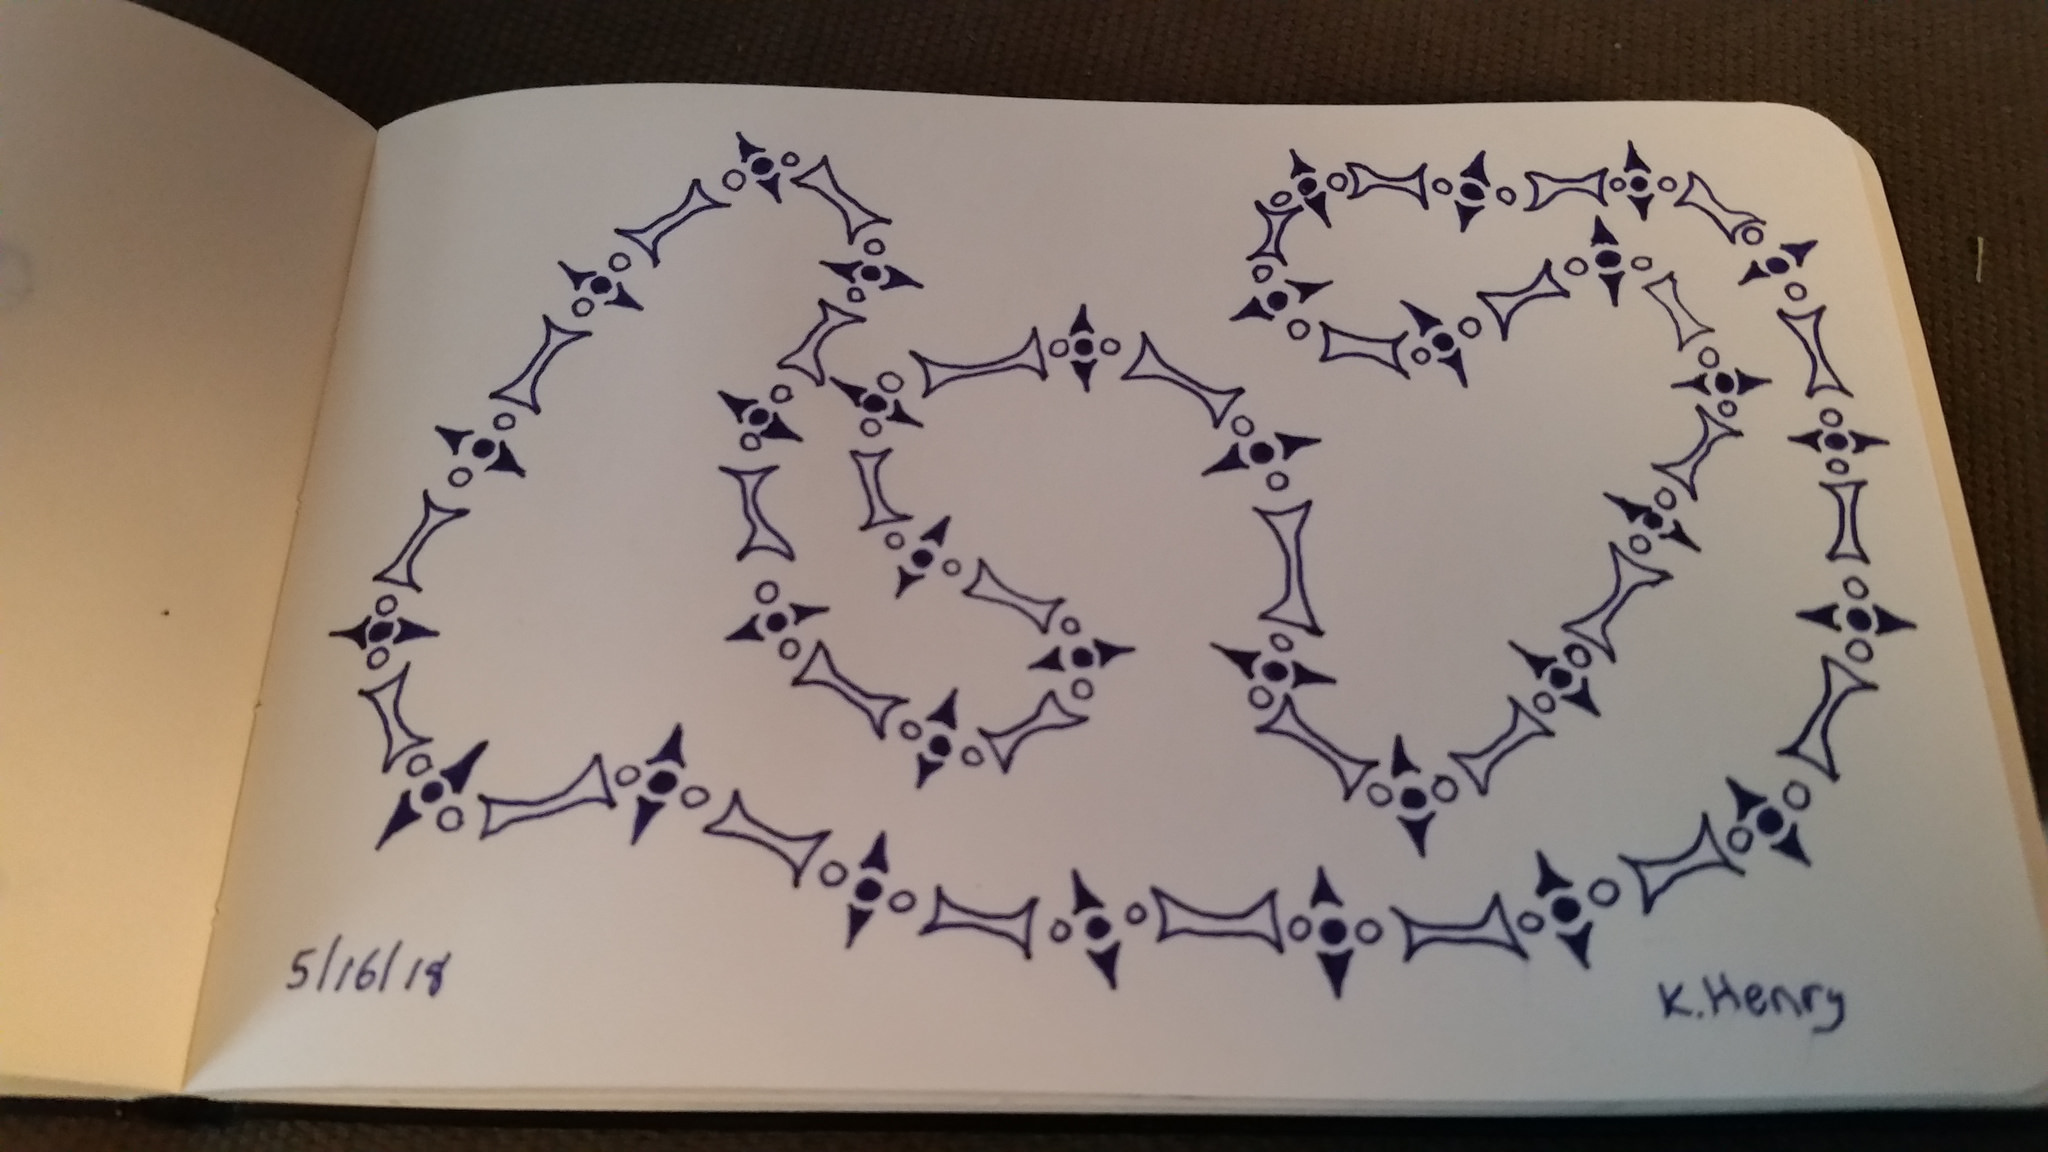 5/16/18
K.Henry